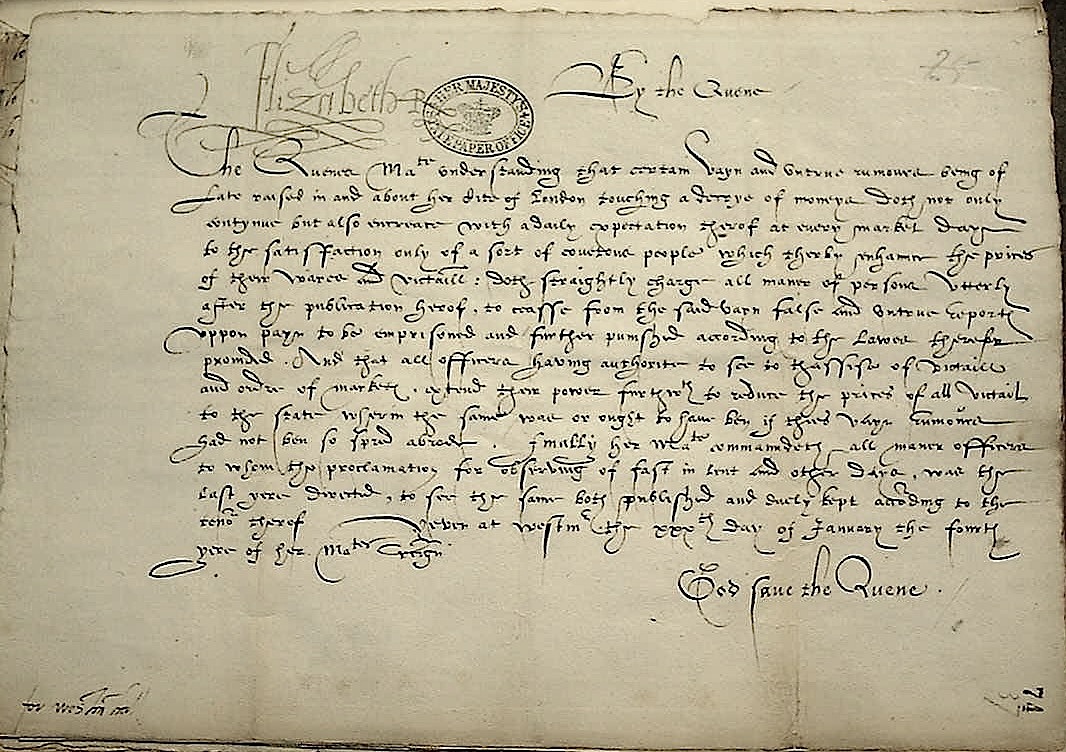 25
Elizabeth R
HER MAJESTY'S STATE PAPER OFFICE
By the Quene
The Quenes Ma^te understanding that certain vayn and untrue rumours being of
late raised in and about her Citie of London touching a decrye of moneys doth not only
contynue but also encreace with a daily expectation therof at every market daye
to the satisfaction only of a sort of covetous people which therby enhance the prices
of their wares and victaill: doth straightly charge all maner of persons utterly
after the publication herof, to ceasse from the said vayn false and untrue reports
uppon payn to be emprisoned and further punished according to the lawes therefor
provided. And that all officers having authorite to see to thassise of victaill
and ordre of markets, extend their power furthw^t to reduce the prices of all victail
to the state wherin the same was or ought to have ben if thies vayn rumours
had not ben so spred abrode. Finally her Ma^te commaundeth all maner officers
to whom the proclamation for observing of fast in lent and other days, was the
last yere directed, to see the same both published and duely kept according to the
teno^r therof Yeven at Westm^r the xxx^th day of January the fourth
yere of her Ma^tes reign
God save the Quene.